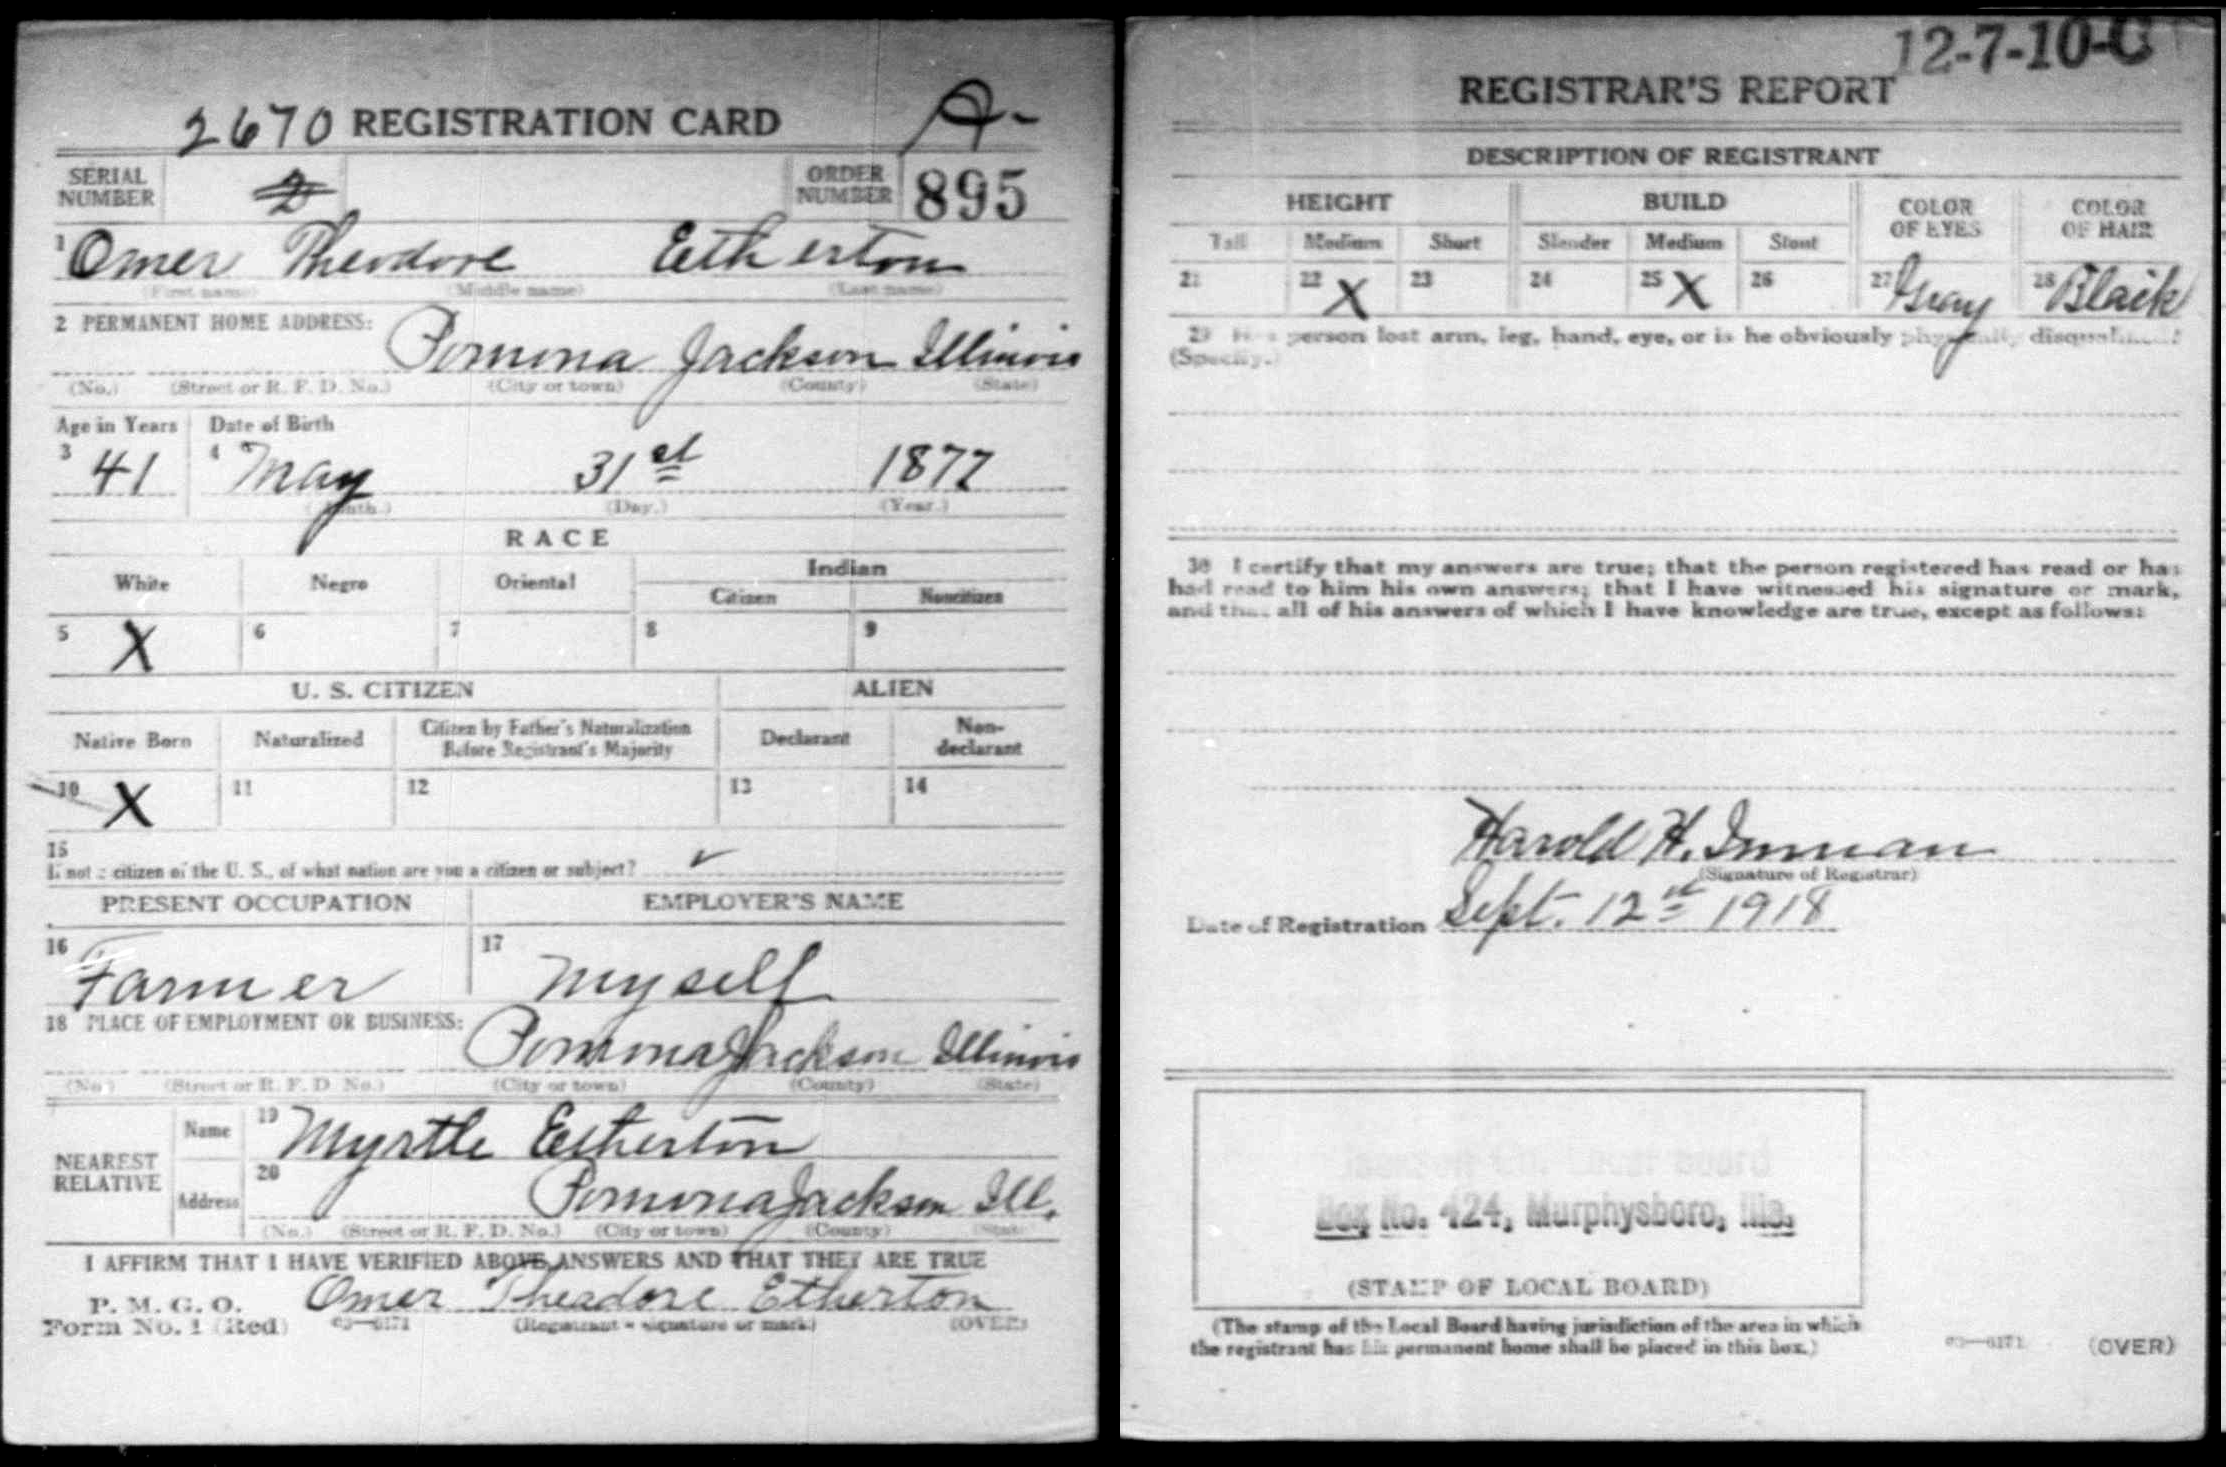 2670 REGISTRATION CARD A-
SERIAL NUMBER 2 ORDER NUMBER 895
1 Omer Theodore Etherton
(First name) (Middle name) (Last name)
2 PERMANENT HOME ADDRESS:
Pomona Jackson Illinois
(No.) (Street or R. F. D. No.) (City or town) (County) (State)
Age in Years Date of Birth
3 41 4 May 31st 1877
(Month.) (Day.) (Year.)
RACE
White Negro Oriental Indian
Citizen Noncitizen
5 X 6 7 8 9
U. S. CITIZEN ALIEN
Native Born Naturalized Citizen by Father's Naturalization Before Registrant's Majority Declarant Non-declarant
10 X 11 12 13 14
15
If not a citizen of the U. S., of what nation are you a citizen or subject?
PRESENT OCCUPATION EMPLOYER'S NAME
16 Farmer 17 Myself
18 PLACE OF EMPLOYMENT OR BUSINESS:
Pomona Jackson Illinois
(No.) (Street or R. F. D. No.) (City or town) (County) (State)
NEAREST RELATIVE
Name 19 Myrtle Etherton
Address 20 Pomona Jackson Ill.
(No.) (Street or R. F. D. No.) (City or town) (County) (State)
I AFFIRM THAT I HAVE VERIFIED ABOVE ANSWERS AND THAT THEY ARE TRUE
P. M. G. O.
Form No. 1 (Red) 03—6171
Omer Theadore Etherton
(Registrant's signature or mark) (OVER)
12-7-10-C
REGISTRAR'S REPORT
DESCRIPTION OF REGISTRANT
HEIGHT BUILD COLOR OF EYES COLOR OF HAIR
Tall Medium Short Slender Medium Stout
21 22 X 23 24 25 X 26 27 Gray 28 Black
29 Has person lost arm, leg, hand, eye, or is he obviously physically disqualified?
(Specify.)
30 I certify that my answers are true; that the person registered has read or has
had read to him his own answers; that I have witnessed his signature or mark,
and that all of his answers of which I have knowledge are true, except as follows:
Harold H. Inman
(Signature of Registrar)
Date of Registration Sept. 12st 1918
Jackson Co. Local Board
Box No. 424, Murphysboro, Ills.
(STAMP OF LOCAL BOARD)
(The stamp of the Local Board having jurisdiction of the area in which
the registrant has his permanent home shall be placed in this box.)
03—6171 (OVER)